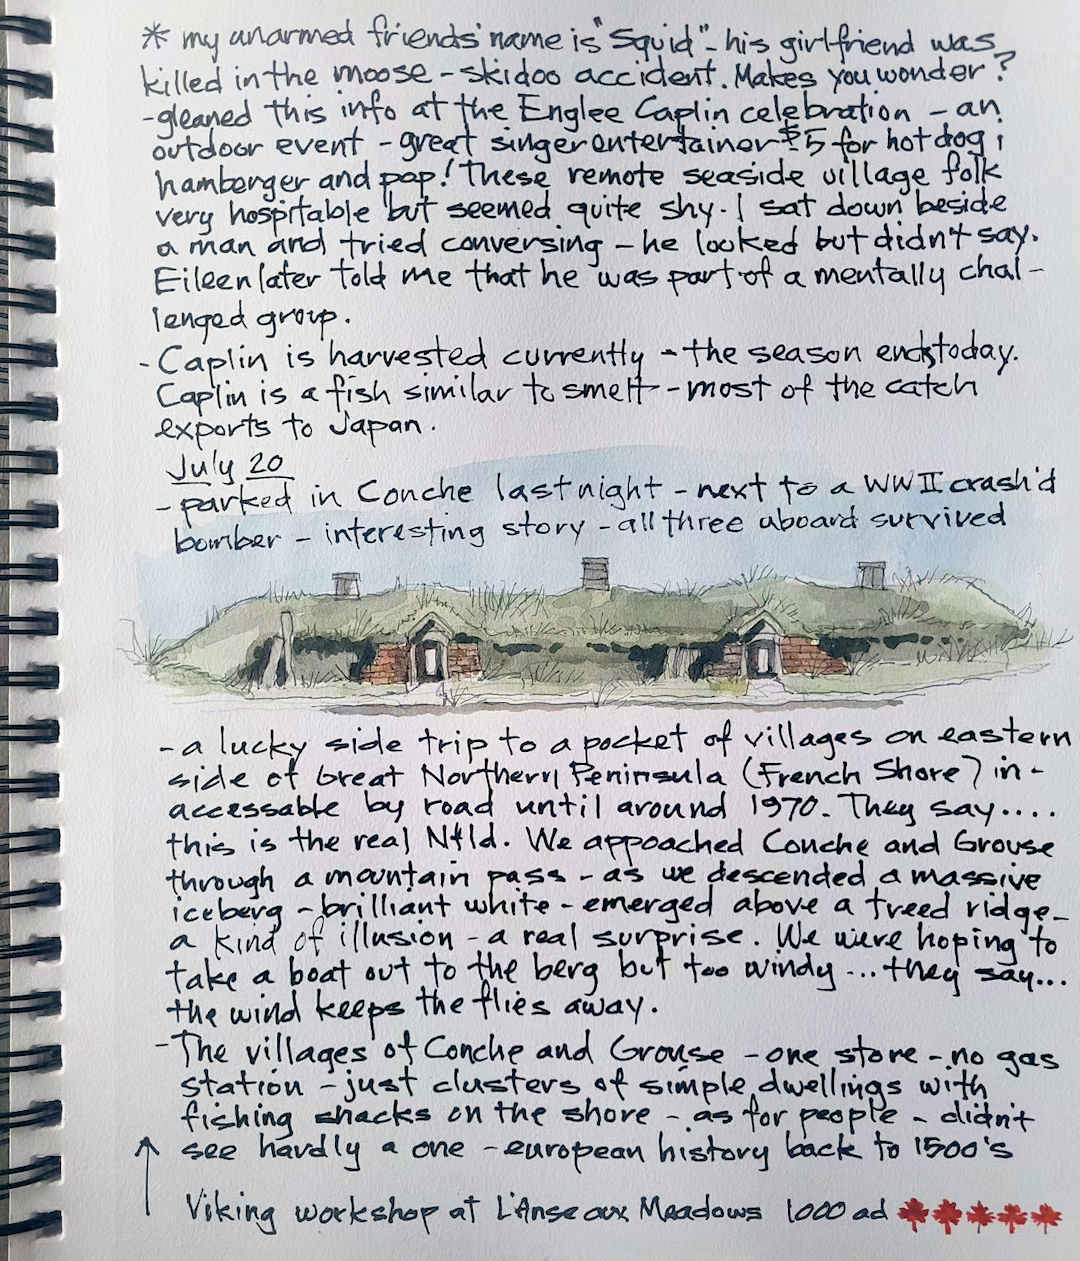 * my unarmed friends' name is "Squid" - his girlfriend was
killed in the moose - skidoo accident. Makes you wonder?
- gleaned this info at the Englee Caplin celebration - an
outdoor event - great singer entertainer $5 for hot dog,
hamberger and pop! These remote seaside village folk
very hospitable but seemed quite shy. I sat down beside
a man and tried conversing - he looked but didn't say.
Eileen later told me that he was part of a mentally chal-
lenged group.
- Caplin is harvested currently - the season ends today.
Caplin is a fish similar to smelt - most of the catch
exports to Japan.
July 20
- parked in Conche last night - next to a WWII crash'd
bomber - interesting story - all three aboard survived
- a lucky side trip to a pocket of villages on eastern
side of Great Northern Peninsula (French Shore) in-
accessable by road until around 1970. They say....
this is the real Nfld. We appoached Conche and Grouse
through a mountain pass - as we descended a massive
iceberg - brilliant white - emerged above a treed ridge -
a kind of illusion - a real surprise. We were hoping to
take a boat out to the berg but too windy ... they say...
the wind keeps the flies away.
- The villages of Conche and Grouse - one store - no gas
station - just clusters of simple dwellings with
fishing shacks on the shore - as for people - didn't
see hardly a one - european history back to 1500's
Viking workshop at L'Anse aux Meadows 1000 ad